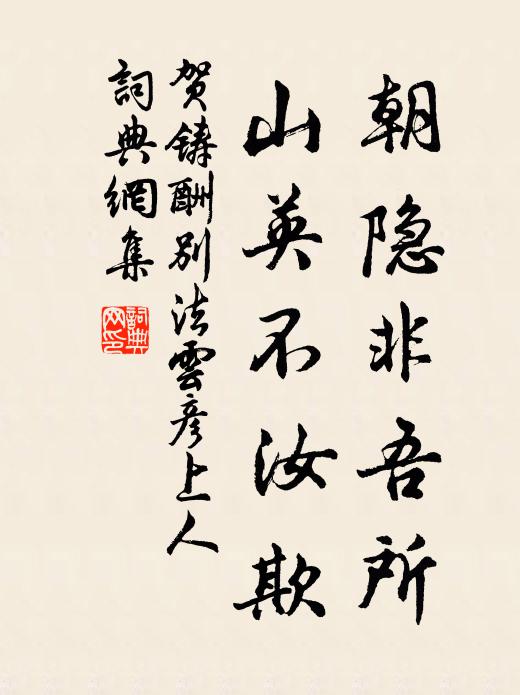 朝隐非吾所
山英不汝欺
贺铸酬别法雲彦上人
詞典網集
詞典网印